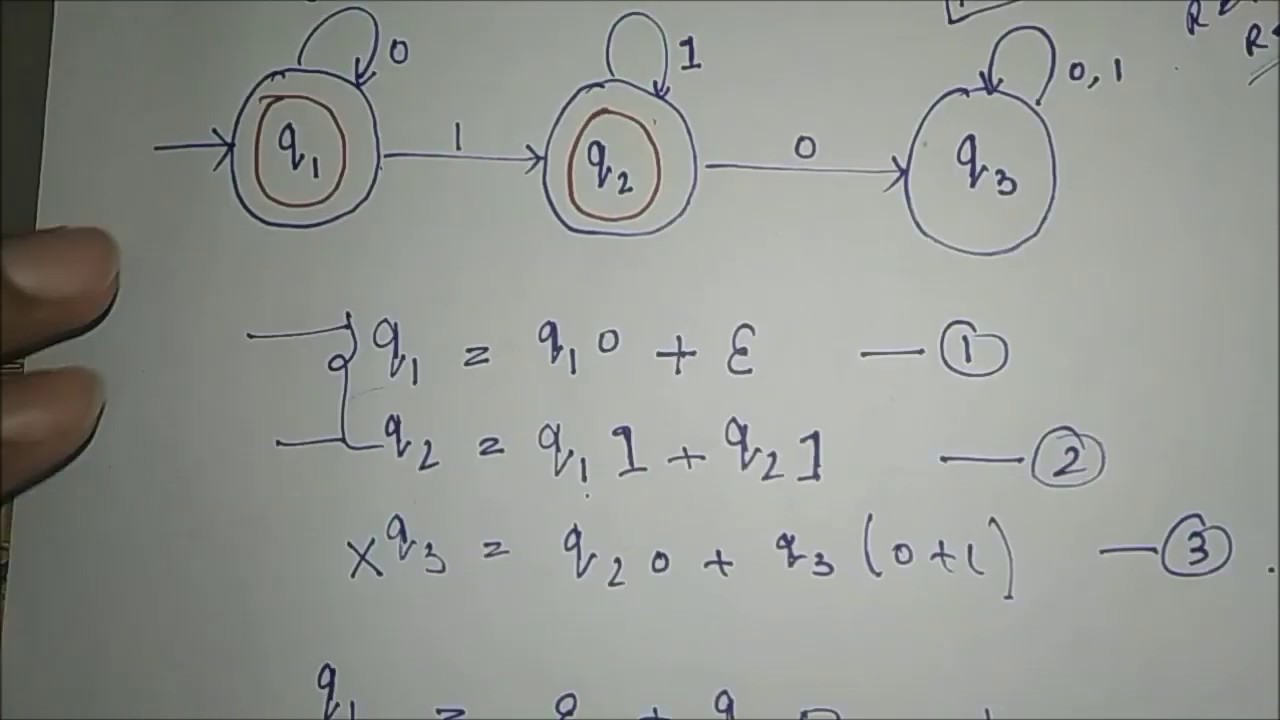 R
0 1 0,1 R
q₁ 1 q₂ 0 q₃
q₁ = q₁0 + ε — ①
q₂ = q₁1 + q₂1 — ②
x q₃ = q₂0 + q₃(0+1) — ③
q₁ =